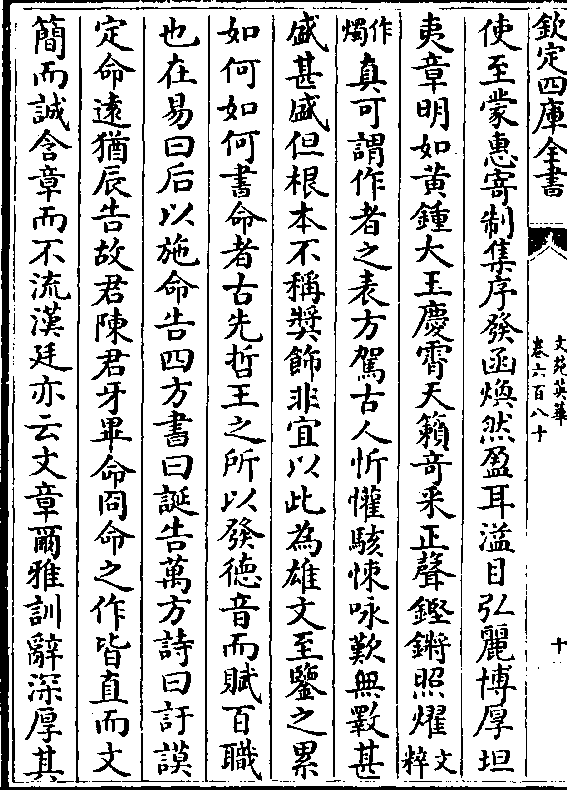 欽定四庫全書
文苑英華
卷六百八十
十
使至蒙惠寄制集序發函煥然盈耳溢目弘麗博厚坦
夷章明如黃鍾大玉慶霄天籟奇采正聲鏗鏘照燿文粹
作燭真可謂作者之表方駕古人忻懽駭悚咏歎無斁甚
盛甚盛但根本不稱獎飾非宜以此為雄文至鑒之累
如何如何書命者古先哲王之所以發德音而賦百職
也在易曰后以施命告四方書曰誕告萬方詩曰訏謨
定命遠猶辰告故君陳君牙畢命冏命之作皆直而文
簡而誠含章而不流漢廷亦云文章爾雅訓辭深厚其